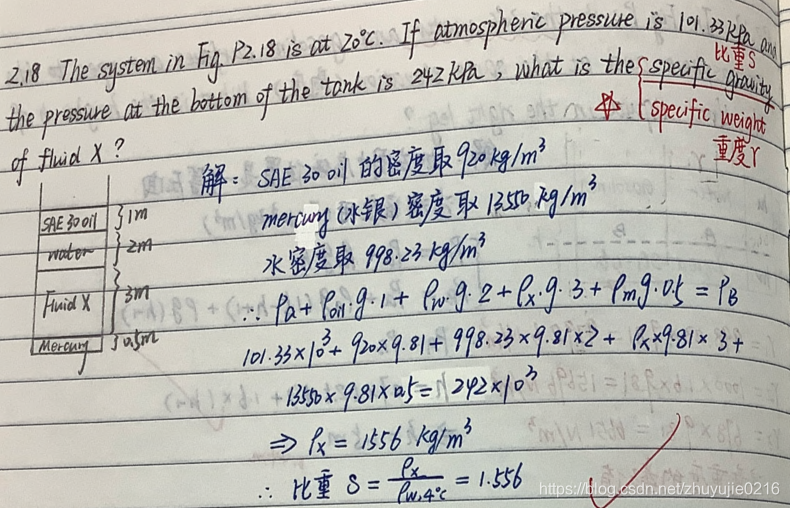 2.18 The system in Fig P2.18 is at 20°C. If atmospheric pressure is 101.33 kPa and
the pressure at the bottom of the tank is 242 kPa, what is the { specific gravity 比重S
☆ specific weight
重度γ
of fluid X ?
解: SAE 30 oil 的密度取 920 kg/m³
mercury (水银) 密度取 13550 kg/m³
水密度取 998.23 kg/m³
SAE 30 oil } 1m
water } 2m
Fluid X } 3m
Mercury } 0.5m
∴ Pa + ρoil·g·1 + ρw·g·2 + ρx·g·3 + ρm g·0.5 = PB
101.33×10³ + 920×9.81 + 998.23×9.81×2 + ρx×9.81×3 +
13550×9.81×0.5 = 242×10³
⇒ ρx = 1556 kg/m³
∴ 比重 S = ρx / ρw,4°C = 1.556
https://blog.csdn.net/zhuyujie0216